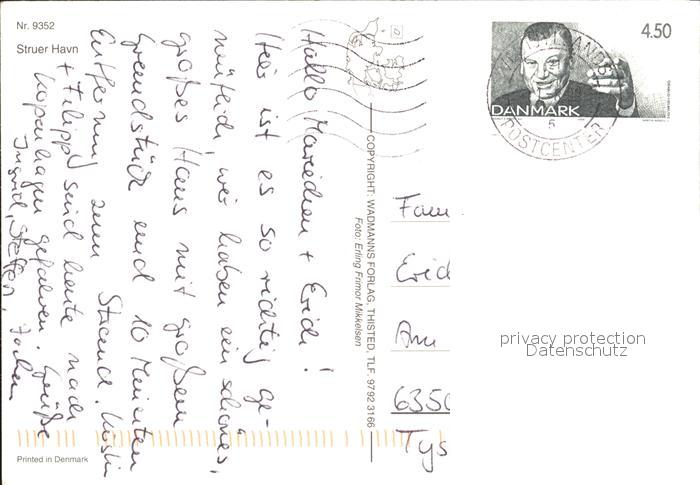 Nr. 9352
Struer Havn
Hallo Mariechen + Erich!
Hier ist es so richtig ge-
mütlich, wir haben ein schönes,
großes Haus mit großem
Grundstück und 10 Minuten
Entfernung zum Strand.
+ Filipp sind heute nach
Kopenhagen gefahren. Grüße
Ingrid, Steffen, Jochen
Printed in Denmark
COPYRIGHT: WADMANNS FORLAG, THISTED, TLF. 9792 3166
Foto: Erling Frimor Mikkelsen
4.50
DANMARK
POSTCENTER
Fam
Erich
Am
6350
Tys
privacy protection
Datenschutz